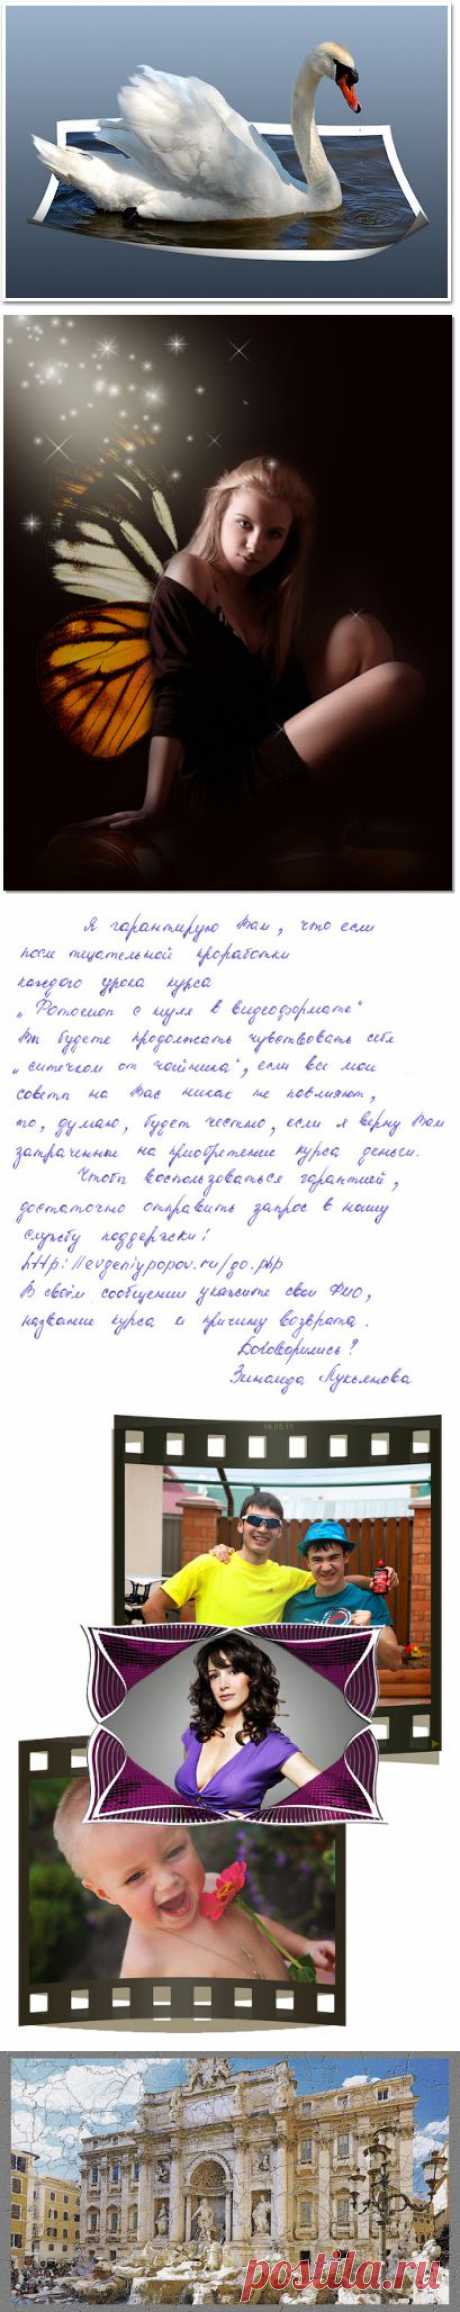 Я гарантирую Вам, что если
после тщательной проработки
каждого урока курса
„Фотошоп с нуля в видеоформате"
Вы будете продолжать чувствовать себя
„ситечком от чайника", если все мои
советы на Вас никак не повлияют,
то, думаю, будет честно, если я верну Вам
затраченные на приобретение курса деньги.
Чтобы воспользоваться гарантией,
достаточно отправить запрос в нашу
службу поддержки:
http://evgeniypopov.ru/go.php
В своём сообщении укажите свои ФИО,
название курса и причину возврата.
Договорились?
Зинаида Лукьянова
postila.ru